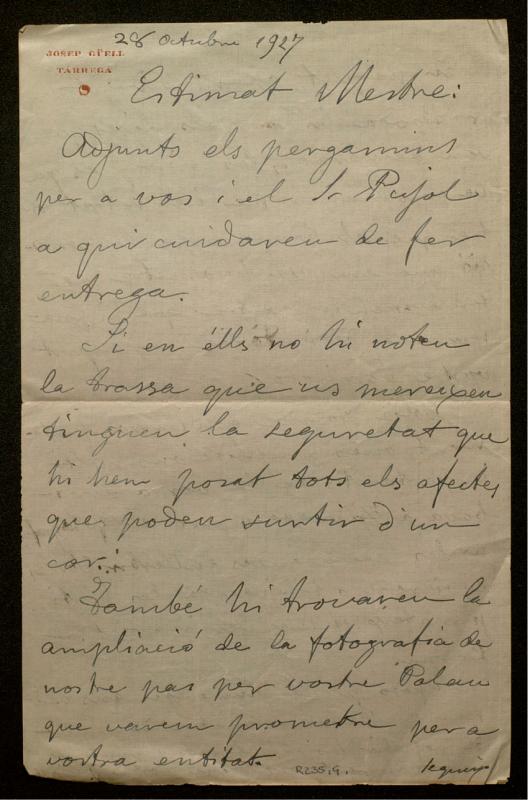 28 octubre 1927
JOSEP GÜELL
TÀRREGA
Estimat Mestre:
Adjunts els pergamins
per a vos i el Sr Pujol
a qui cuidareu de fer
entrega.
Si en élls no hi noten
la trassa que us mereixen
tinguen la seguretat que
hi hem posat tots els afectes
que poden surtir d'un
cor.
També hi trovareu la
ampliació de la fotografia de
nostre pas per vostre Palau
que varem prometre per a
vostra entitat.
R235,9.